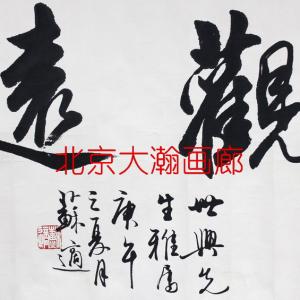 觀遠
北京大瀚画廊
世興先
生雅属
庚午
之夏月
蘇適